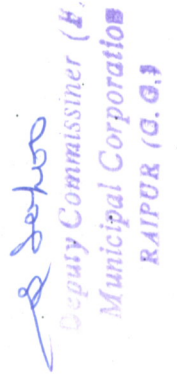 Deputy Commissiner (H.
Municipal Corporation
RAIPUR (C.G.)